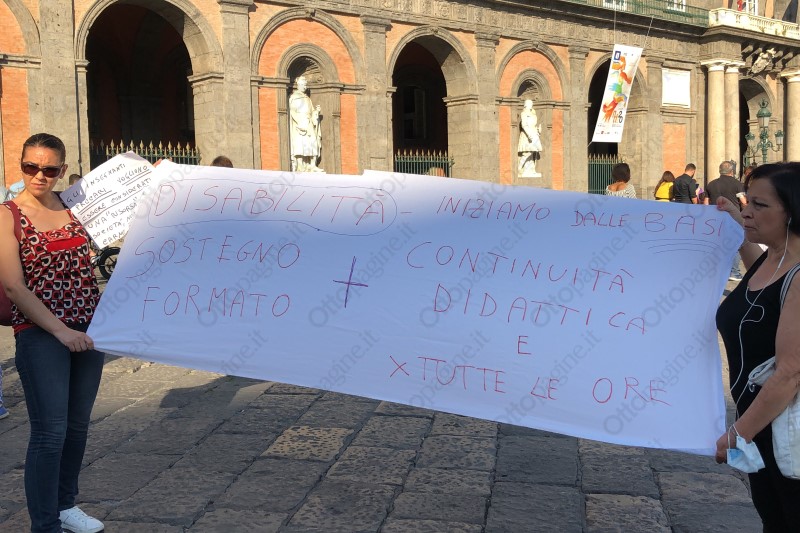 DISABILITÀ - INIZIAMO DALLE BASI
SOSTEGNO + CONTINUITÀ
FORMATO DIDATTICA
E
X TUTTE LE ORE
INSEGNANTI
ESSERE
Ottopagine.it